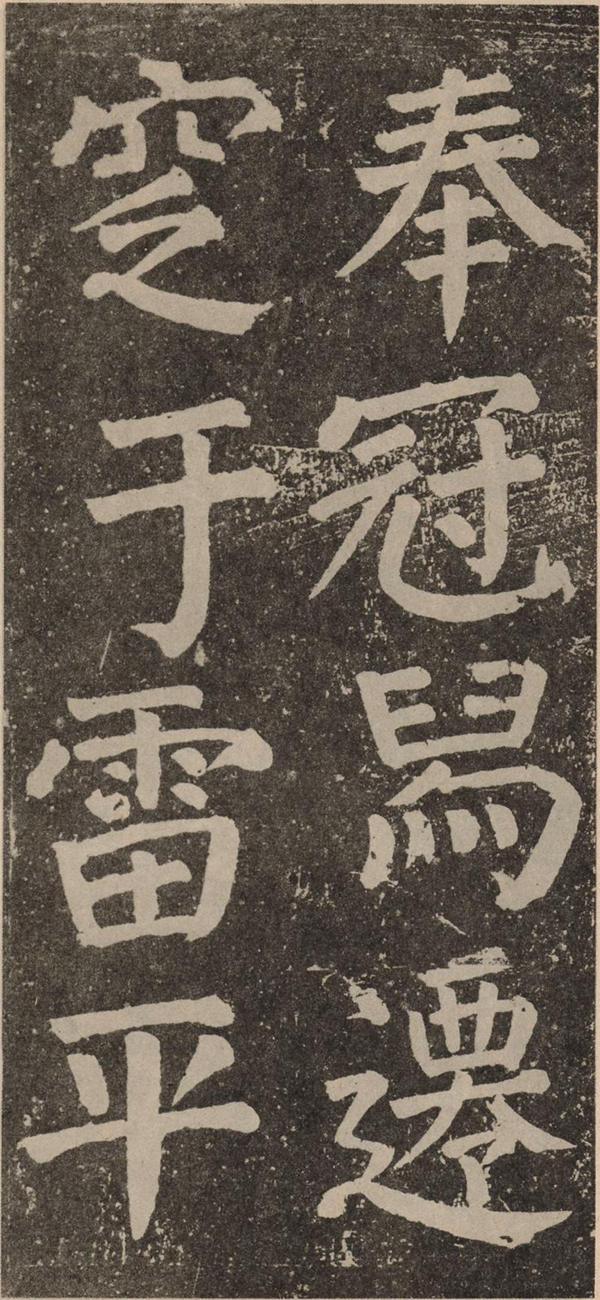 奉冠舄遷
窆于雷平